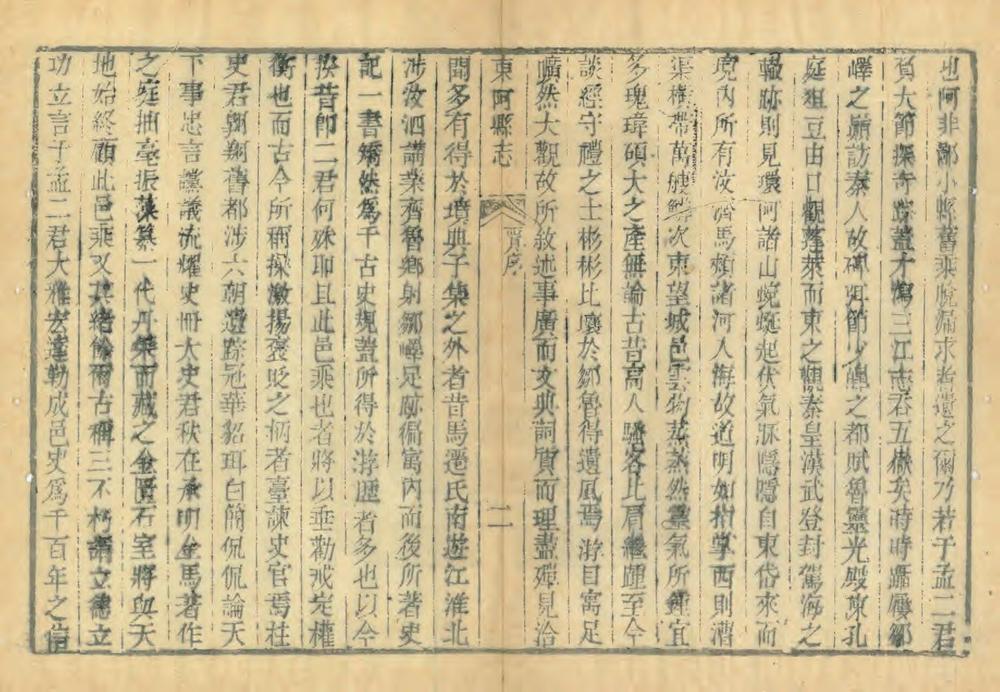 也阿非鄙小縣舊乘脫漏求者遺之爾乃若于孟二君
負大節探奇蹤蓋才瀉三江志吞五嶽矣時時躡屩鄒
嶧之巔訪秦人故碑弭節少皥之都賦魯靈光殿東孔
庭俎豆由日觀蓬萊而東之觀秦皇漢武登封駕海之
轍跡則見環阿諸山蜿蜒起伏氣脈隱隱自東岱來而
境內所有汶濟馬頰諸河入海故道明如指掌西則漕
渠橫帶萬艘鱗次東望城邑雲物蒸蒸然靈氣所鍾宜
多瑰瑋碩大之產無論古昔高人騷客比肩繼踵至今
談經守禮之士彬彬比隆於鄒魯得遺風焉游目寓足
曠然大觀故所敘述事廣而文典詞質而理盡殫見洽
東阿縣志
賈序
二
聞多有得於墳典子集之外者昔馬遷氏南遊江淮北
涉汶泗講業齊魯鄉射鄒嶧足跡徧寓內而後所著史
記一書矯然爲千古史規蓋所得於游歷者多也以今
揆昔即二君何殊耶且此邑乘也者將以垂勸戒定權
衡也而古今所稱操激揚褒貶之柄者臺諫史官焉柱
史君翱翔舊都涉六朝遺踪冠華貂珥白簡侃侃論天
下事忠言讜議流耀史冊大史君秩在承明金馬著作
之庭抽毫振藻纂一代丹策而藏之金匱石室將與天
地始終顧此邑乘又其緒餘爾古稱三不朽謂立德立
功立言于孟二君大雅宏達勒成邑史爲千百年之信